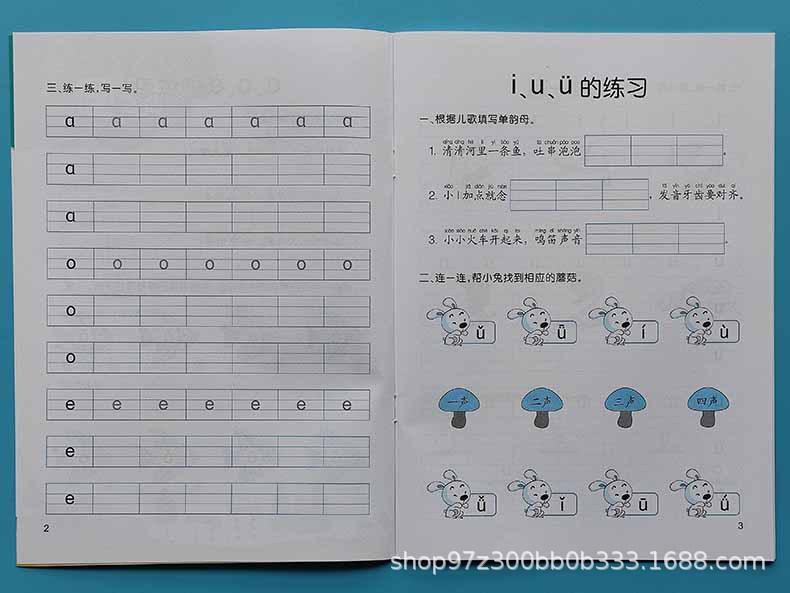 三、练一练,写一写。
a a a a a a a
a
a
o o o o o o o
o
o
e e e e e e e
e
e
2
i、u、ü 的练习
一、根据儿歌填写单韵母。
qīng qīng hé lǐ yì tiáo yú tǔ chuàn pào pao
1. 清清河里一条鱼,吐串泡泡 。
xiǎo jiā diǎn jiù niàn fā yīn yá chǐ yào duì qí
2. 小 l 加点就念 ,发音牙齿要对齐。
xiǎo xiǎo huǒ chē kāi qǐ lái míng dí shēng yīn
3. 小小火车开起来,鸣笛声音 。
二、连一连,帮小兔找到相应的蘑菇。
ǔ ū í ù
一声 二声 三声 四声
ǚ ǐ ū ú
3
shop97z300bb0b333.1688.com